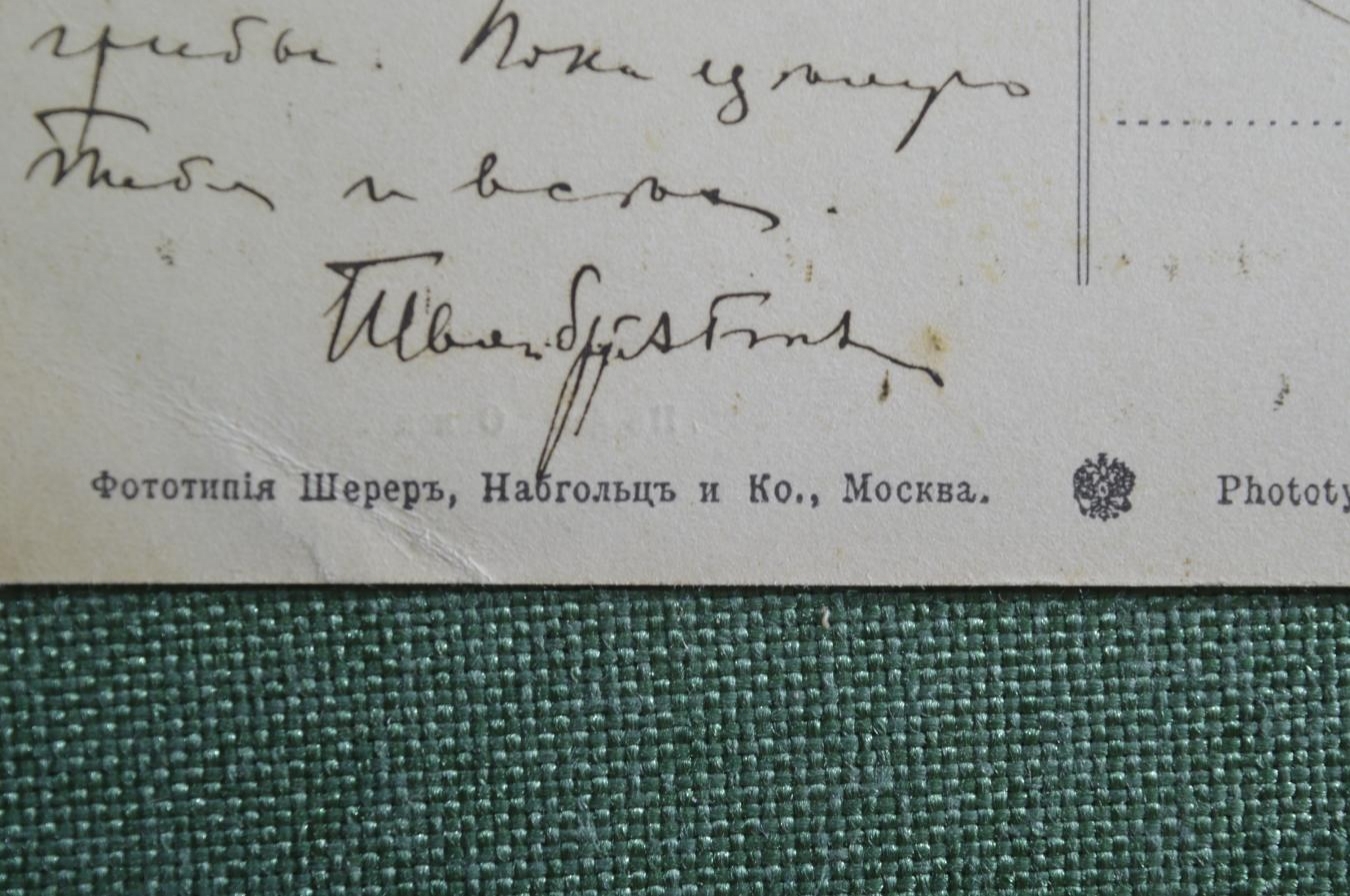 грибы. Пока цѣлую
Тебя и всѣхъ.
Твой братъ
Фототипія Шереръ, Набгольцъ и Ко., Москва.
Phototy